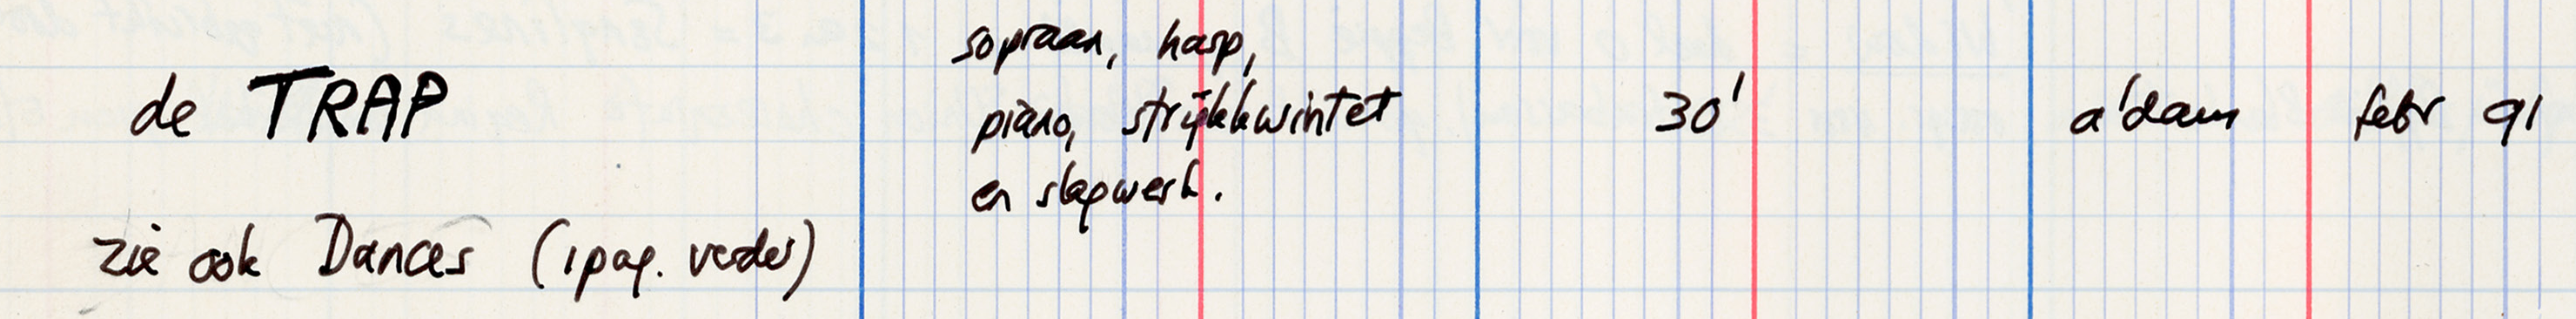 sopraan, harp,
de TRAP piano, strijkkwintet 30' a'dam febr 91
en slagwerk.
zie ook Dances (1 pag. verder)